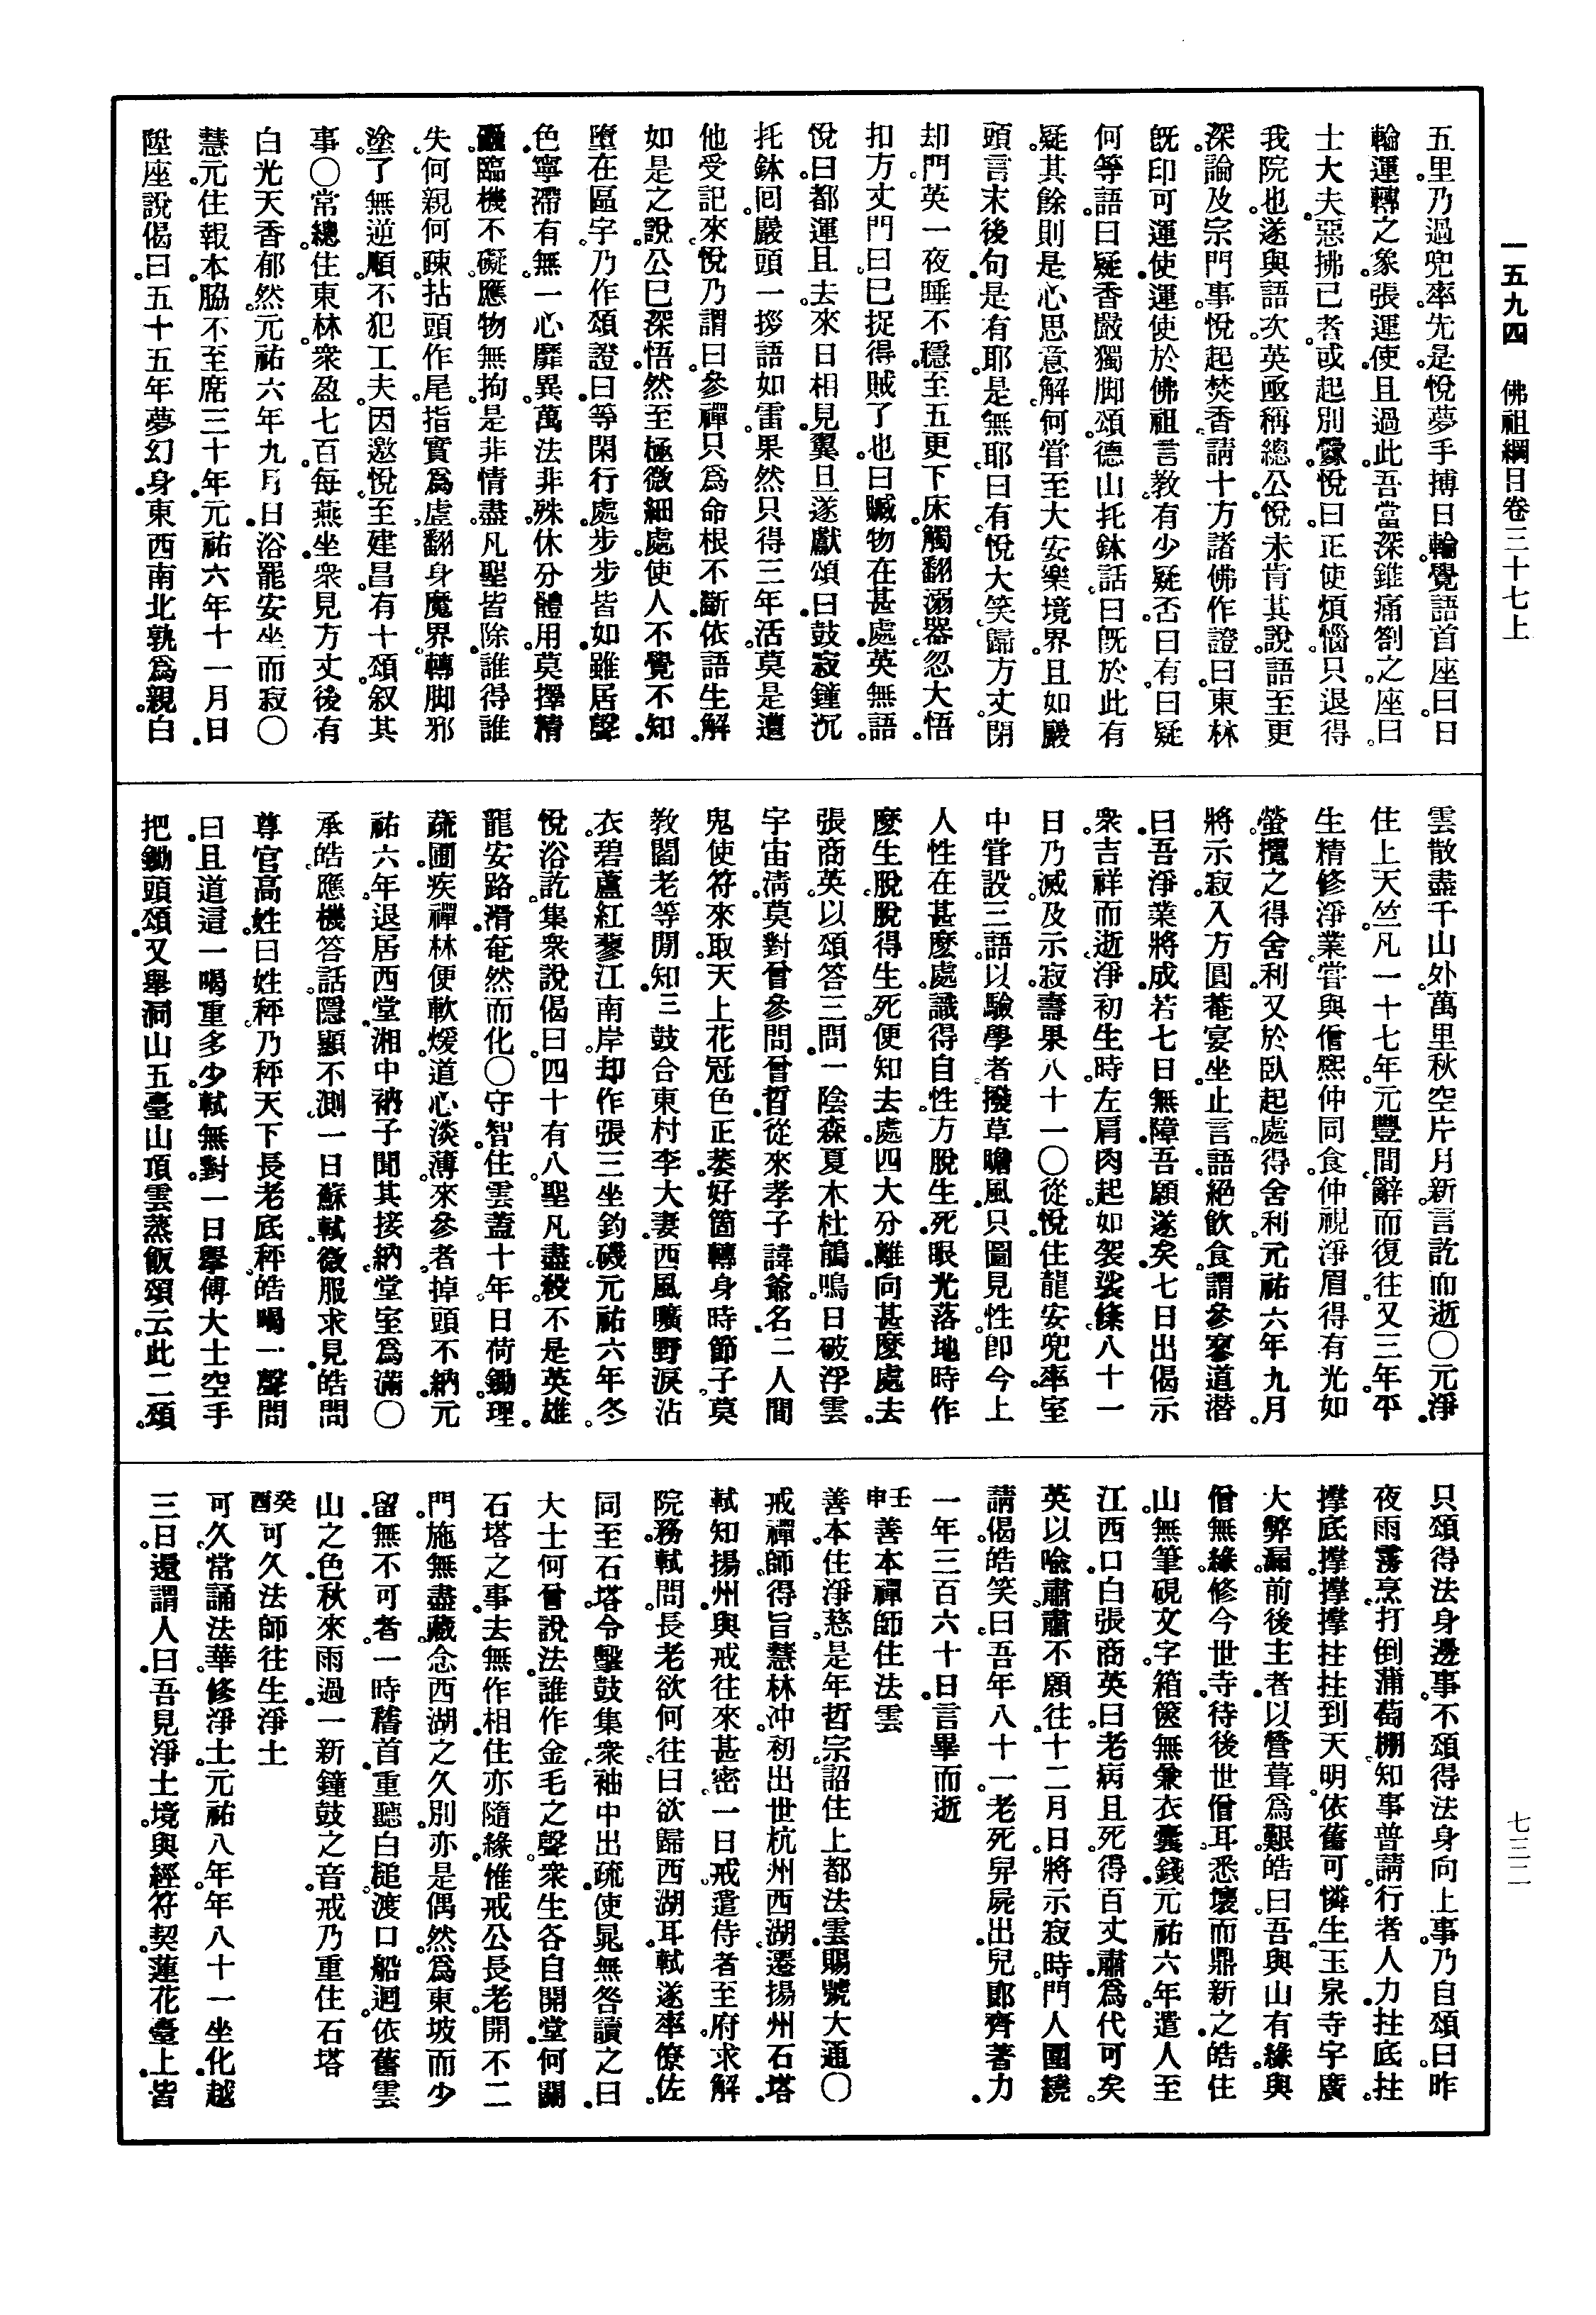 一五九四　佛祖綱目卷三十七上
五里。乃過兜率。先是悅夢手搏日輪。覺語首座曰。日
輪運轉之象。張運使且過此。吾當深錐痛劄之。座曰。
士大夫惡拂已者。或起別釁。悅曰。正使煩惱。只退得
我院也。遂與語次。英亟稱總公。悅未肯其說。語至更
深。論及宗門事。悅起焚香。請十方諸佛作證曰。東林
既印可運使。運使於佛祖言教有少疑否。曰有。曰疑
何等語。曰疑香嚴獨脚頌。德山托鉢話。曰既於此有
疑。其餘則是心思意解。何甞至大安樂境界。且如巖
頭言末後句。是有耶。是無耶。曰有。悅大笑歸方丈。閉
却門。英一夜睡不穩。至五更下床。觸翻溺器。忽大悟。
扣方丈門曰。已捉得賊了也。曰贓物在甚處。英無語。
悅曰。都運且去。來日相見。翼旦遂獻頌曰。鼓寂鐘沉
托鉢回。巖頭一拶語如雷。果然只得三年活。莫是遭
他受記來。悅乃謂曰。參禪只為命根不斷。依語生解。
如是之說。公已深悟。然至極微細處。使人不覺不知。
墮在區宇。乃作頌證曰。等閑行處。步步皆如。雖居聲
色。寧滯有無。一心靡異。萬法非殊。休分體用。莫擇精
麤。臨機不礙。應物無拘。是非情盡。凡聖皆除。誰得誰
失。何親何疎。拈頭作尾。指實為虛。翻身魔界。轉脚邪
塗。了無逆順。不犯工夫。因邀悅。至建昌。有十頌叙其
事○常總。住東林。衆盈七百。每燕坐。衆見方丈後有
白光。天香郁然。元祐六年九月日。浴罷安坐而寂○
慧元。住報本。脇不至席三十年。元祐六年十一月日。
陞座說偈曰。五十五年夢幻身。東西南北孰為親。白
雲散盡千山外。萬里秋空片月新。言訖而逝○元淨。
住上天竺。凡一十七年。元豐間。辭而復往。又三年。平
生精修淨業。甞與僧熈仲同食。仲視淨眉得有光如
螢。攬之得舍利。又於臥起處得舍利。元祐六年九月。
將示寂。入方圓菴宴坐。止言語。絕飲食。謂參寥道潜
曰。吾淨業將成。若七日無障。吾願遂矣。七日出偈示
衆。吉祥而逝。淨初生時。左肩肉起如袈裟絛。八十一
日乃滅。及示寂。壽果八十一○從悅。住龍安兜率。室
中甞設三語以驗學者。撥草瞻風。只圖見性。即今上
人性在甚麼處。識得自性。方脫生死。眼光落地時。作
麼生脫。脫得生死。便知去處。四大分離。向甚麼處去。
張商英。以頌答三問。一陰森夏木杜鵑鳴。日破浮雲
宇宙清。莫對曾參問曾晳。從來孝子諱爺名。二人間
鬼使符來取。天上花冠色正萎。好箇轉身時節子。莫
教閻老等閑知。三鼓合東村李大妻。西風曠野淚沾
衣。碧蘆紅蓼江南岸。却作張三坐釣磯。元祐六年冬。
悅浴訖。集衆說偈曰。四十有八。聖凡盡殺。不是英雄。
龍安路滑。奄然而化○守智。住雲葢十年。日荷鋤理
蔬圃。疾禪林便軟煖。道心淡薄。來參者。掉頭不納。元
祐六年。退居西堂。湘中衲子聞其接納。堂室為滿○
承皓。應機答話。隱顯不測。一日蘇軾。微服求見。皓問
尊官高姓。曰姓秤。乃秤天下長老底秤。皓喝一聲。問
曰。且道這一喝重多少。軾無對。一日舉傅大士空手
把鋤頭頌。又舉洞山五臺山頂雲蒸飯頌云。此二頌。
只頌得法身邊事。不頌得法身向上事。乃自頌曰。昨
夜雨霶烹。打倒蒲萄棚。知事普請。行者人力。拄底拄。
撐底撐。撐撐拄拄到天明。依舊可憐生。玉泉寺宇廣
大弊漏。前後主者。以營葺為艱。皓曰。吾與山有緣。與
僧無緣。修今世寺。待後世僧耳。悉壞而鼎新之。皓住
山。無筆硯文字箱篋。無兼衣囊錢。元祐六年。遣人至
江西口。白張商英曰。老病且死。得百丈肅為代可矣。
英以喻肅。肅不願往。十二月日。將示寂時。門人圍繞
請偈。皓笑曰。吾年八十一。老死舁屍出。兒郎齊著力。
一年三百六十日。言畢而逝
壬申　善本禪師住法雲
善本。住淨慈。是年哲宗詔住上都法雲。賜號大通○
戒禪師。得旨慧林冲。初出世杭州西湖。遷揚州石塔。
軾知揚州。與戒往來甚密。一日戒遣侍者至府。求解
院務。軾問。長老欲何往。曰欲歸西湖耳。軾遂率僚佐。
同至石塔。令擊鼓集衆。袖中出疏。使晁無咎讀之曰。
大士何曾說法。誰作金毛之聲。衆生各自開堂。何關
石塔之事。去無作相。住亦隨緣。惟戒公長老。開不二
門。施無盡藏。念西湖之久別。亦是偶然。為東坡而少
留。無不可者。一時稽首。重聽白槌。渡口船迴。依舊雲
山之色。秋來雨過。一新鐘鼓之音。戒乃重住石塔
癸酉　可久法師往生淨土
可久。常誦法華。修淨土。元祐八年。年八十一坐化。越
三日還。謂人曰。吾見淨土境。與經符契。蓮花臺上。皆
七三二